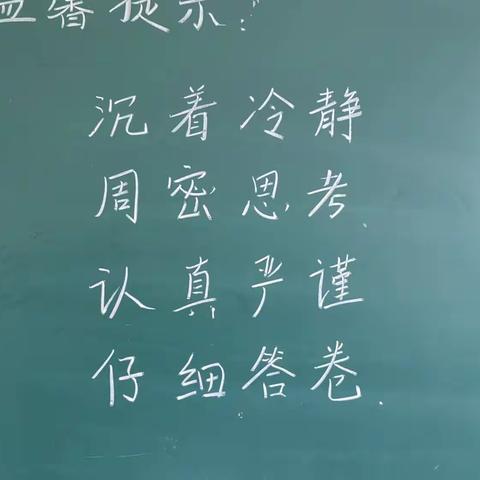 温馨提示:
沉着冷静
周密思考.
认真严谨
仔细答卷.